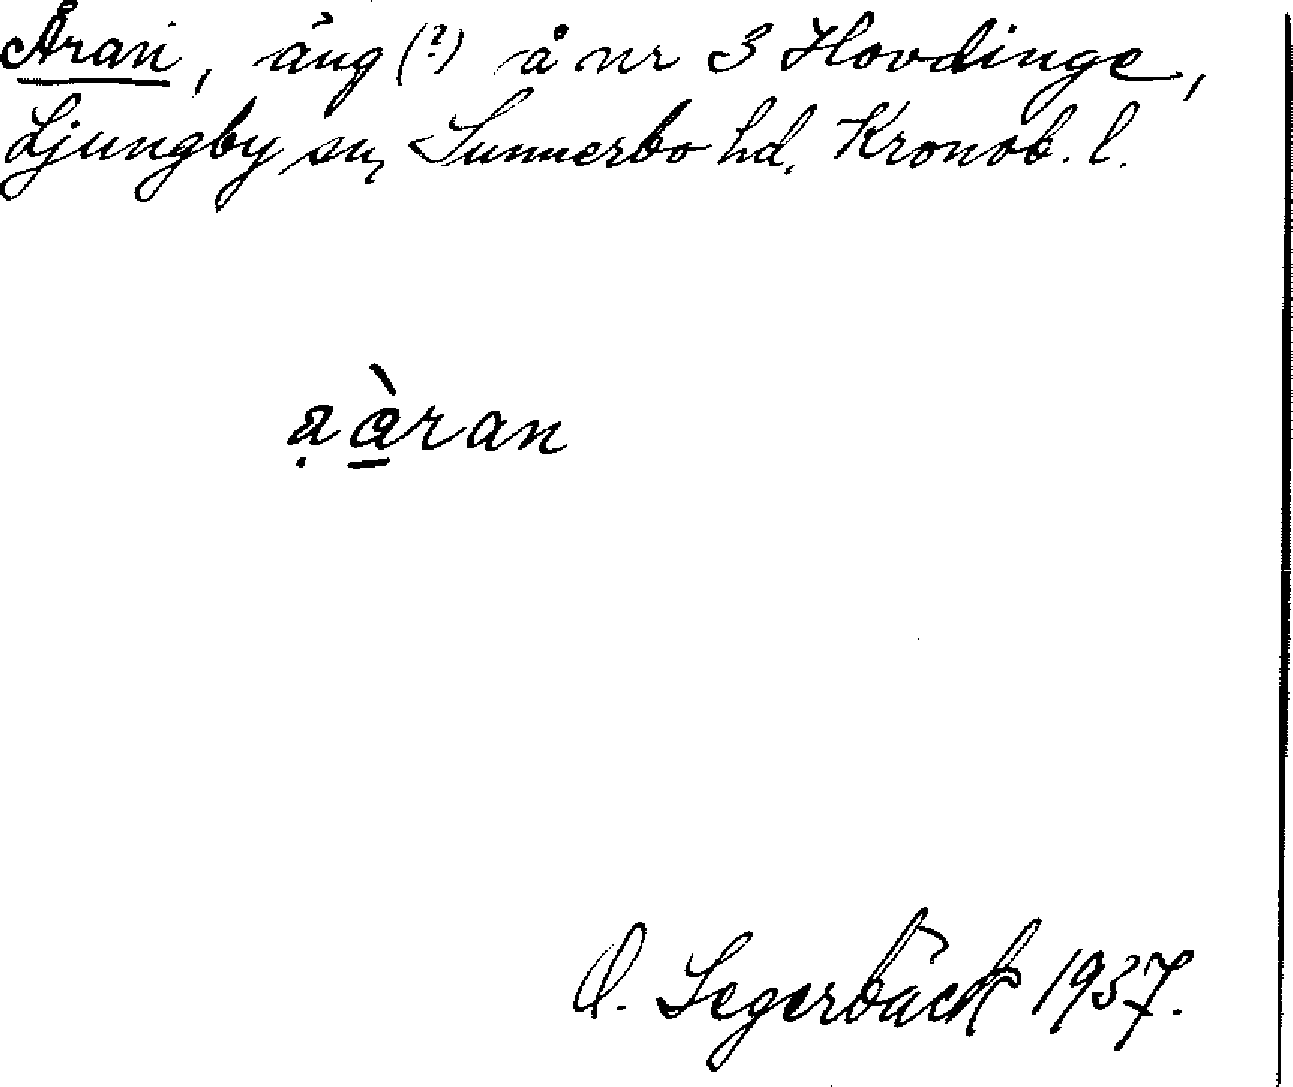 Åran, äng (?) å nr 3 Hovdinge,
Ljungby sn, Sunnerbo hd, Kronob. l.
ạà̱ran
O. Segerbäck 1937.